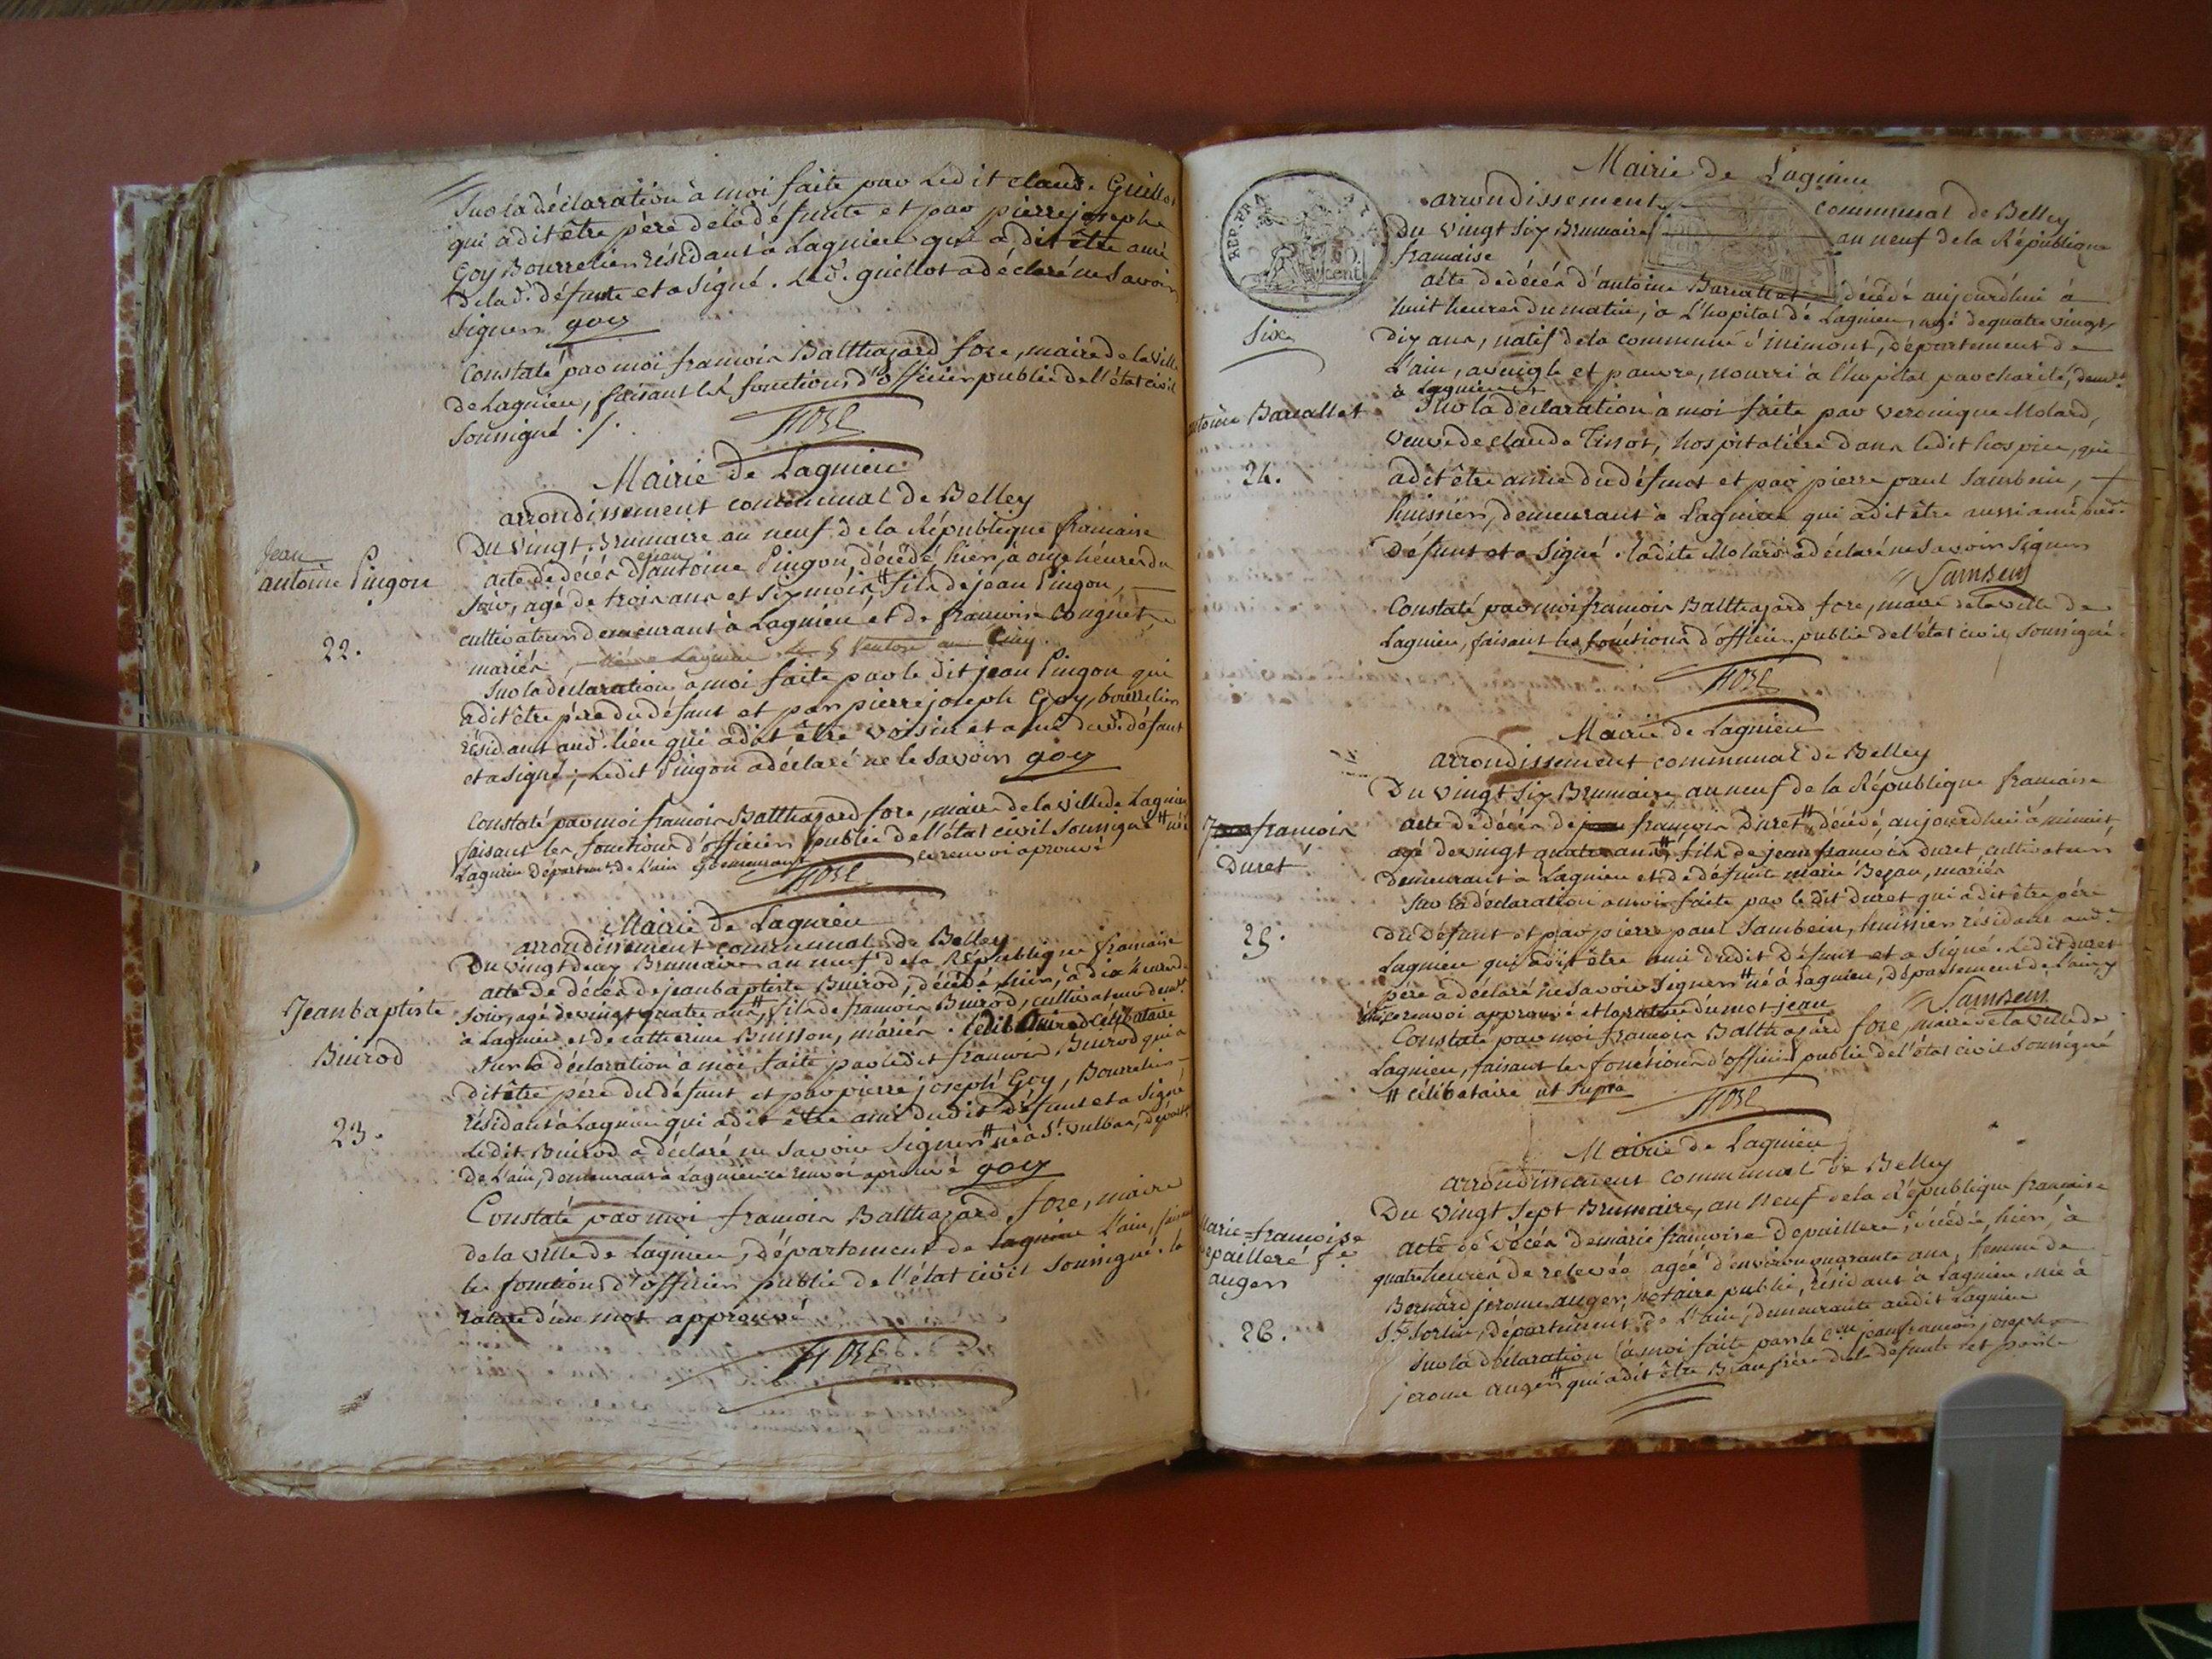 Sur la déclaration à moi faite par ledit claude Guillot
qui a dit être père de la défunte et par pierre joseph
Goy Bourrelier résidant à Lagnieu qui a dit être ami
de la d. défunte et a signé. Led. guillot a déclaré ne savoir
signer goy
Constaté par moi francois Balthazard fore, maire de la ville
de Lagnieu, faisant les fonctions d'officier public de l'état civil
soussigné ./.
FORE
Mairie de Lagnieu
arrondissement communal de Belley
Du vingt Brumaire an neuf de la République francaise
Jean
antoine Pingon
22.
acte de décès d'jean antoine Pingon, décédé hier, a onze heures du
soir, agé de trois ans et six mois # fils de jean Pingon,
cultivateur demeurant à Lagnieu et de francoise
mariés
Sur la déclaration à moi faite par le dit jean Pingon qui
a dit être père du défunt et par pierre joseph Goy, bourrelier
résidant aud. lieu qui a dit être voisin et ami dud. défunt
et a signé; Ledit Pingon a déclaré ne le savoir goy
Constaté par moi francois Balthazard fore, maire de la ville de Lagnieu
faisant les fonctions d'officier public de l'état civil soussigné # né à
Lagnieu départemt. de l'ain y demeurant ce renvoi aprouvé
FORE
Mairie de Lagnieu
arrondissement communal de Belley
Du vingt deux Brumaire an neuf de la République francaise
Jean baptiste
Buirod
23.
acte de décès de jean baptiste Buirod, décédé hier, à dix heures de
soir, agé de vingt quatre ans, # fils de francois Buirod, cultivateur demt.
à Lagnieu et de catherine Buisson, mariés. ledit Buirod célibataire
Sur la déclaration à moi faite par ledit francois Buirod qui a
dit être père du défunt et par pierre joseph Goy, Bourrelier
résidant à Lagnieu qui a dit être ami dudit défunt et a signé
Ledit Buirod a déclaré ne savoir signer # né à St. vulbas, départt.
de l'ain, demeurant à Lagnieu ce renvoi aprouvé goy
Constaté par moi francois Balthazard fore, maire
de la ville de Lagnieu, département de Lagnieu l'ain, faisant
les fonctions d'officier public de l'état civil soussigné. la
rature d'un mot approuvé
FORE
Mairie de Lagnieu
arrondissement communal de Belley
REP. FRA
cent.
Du vingt six Brumaire an neuf de la République
francaise
Six
antoine Baraillet
24.
acte de décès d'antoine Baraillet décédé aujourdhui à
huit heures du matin, à l'hopital de Lagnieu, agé de quatre vingt
dix ans, natif de la commune d'inimont, département de
L'ain, aveugle et pauvre, nourri à l'hopital par charité, demt.
à Lagnieu
Sur la déclaration à moi faite par veronique Molard,
veuve de claude Tissot, hospitalière dans ledit hospice, qui
a dit être amie du défunt et par pierre paul Sambein,
huissier, demeurant à Lagnieu qui a dit être aussi ami dud.
défunt et a signé. ladite Molard a déclaré ne savoir signer
Sambein
Constaté par moi francois Balthazard fore, maire de la ville de
Lagnieu, faisant les fonctions d'officier public de l'état civil soussigné
FORE
Mairie de Lagnieu
arrondissement communal de Belley
Du vingt six Brumaire an neuf de la République francaise
Jean francois
Duret
25.
acte de décès de jean francois Duret #, décédé, aujourdhui à minuit,
agé de vingt quatre ans, # fils de jean francois Duret cultivateur
demeurant à Lagnieu et de défunte marie Bejan, mariés
Sur la déclaration à moi faite par le dit duret qui a dit être père
du défunt et par pierre paul Sambein, huissier résidant aud.
Lagnieu qui a dit être ami dudit défunt et a signé. Ledit duret
père a déclaré ne savoir signer # né à Lagnieu, département de l'ain y
ce renvoi approuvé et la rature du mot jean Sambein
Constaté par moi francois Balthazard fore, maire de la ville de
Lagnieu, faisant les fonctions d'officier public de l'état civil soussigné
# célibataire ut supra
FORE
Mairie de Lagnieu
arrondissement communal de Belley
Du vingt sept Brumaire, an neuf de la République francaise
Marie=francoise
depaillere fe.
auger
26.
acte de décès de marie francoise Depaillere, décédée, hier, à
quatre heures de relevée agée d'environ quarante ans, femme de
Bernard jerome auger, notaire public, résidant à Lagnieu, née à
St. Sorlin, département de l'ain, demeurante audit Lagnieu
Sur la déclaration à moi faite par le Cen. jean francois joseph
jerome auger # qui a dit être Beaufrère de la défunte et par le